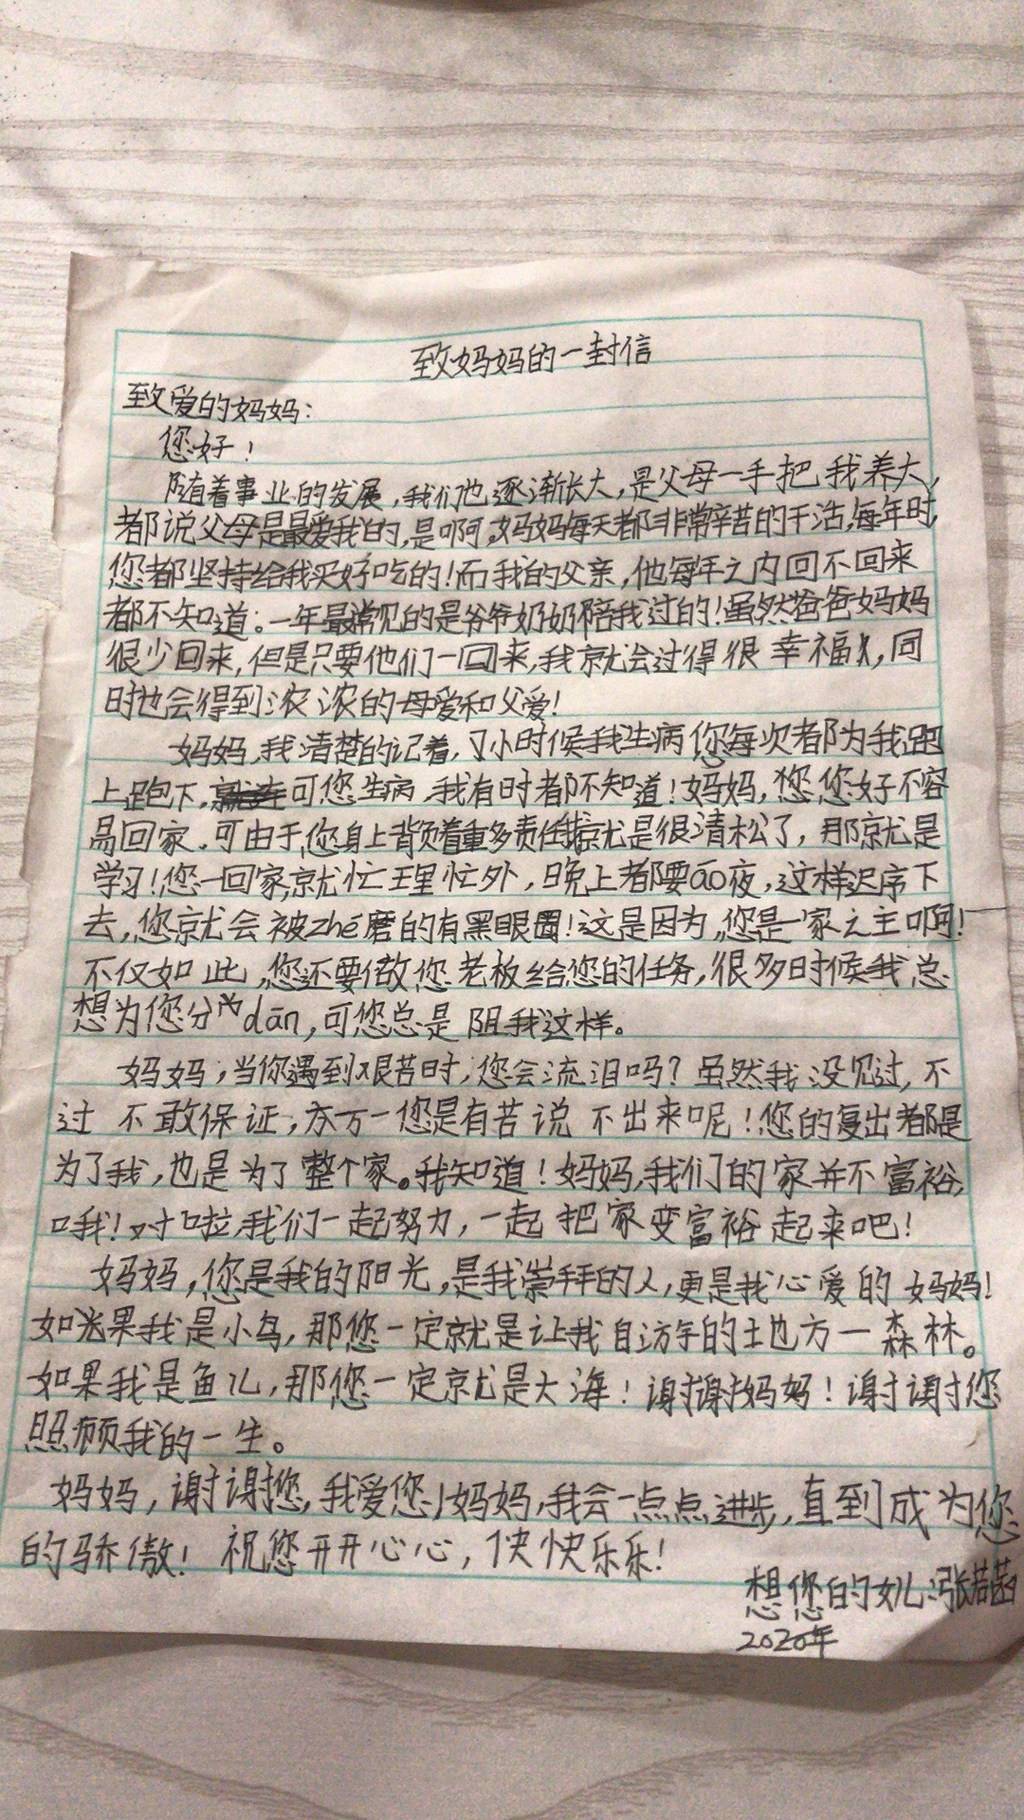 致妈妈的一封信
致爱的妈妈：
您好！
随着事业的发展，我们也逐渐长大，是父母一手把我养大，
都说父母是最爱我的，是啊，妈妈每天都非常辛苦的干活，每年时，
您都坚持给我买好吃的！而我的父亲，他每年之内回不回来
都不知道。一年最常见的是爷爷奶奶陪我过的！虽然爸爸妈妈
很少回来，但是只要他们一回来，我就会过得很幸福，同
时也会得到浓浓的母爱和父爱！
妈妈，我清楚的记着，小时候我生病您每次都为我跑
上跑下，可您生病，我有时都不知道！妈妈，您您好不容
易回家。可由于您身上背负着重多责任我就是很清松了，那就是
学习！您一回家，就忙里忙外，晚上都要āo夜，这样迟序下
去，您就会被zhé磨的有黑眼圈！这是因为，您是一家之主啊！
不仅如此，您还要做您老板给您的任务，很多时候我总
想为您分dān，可您总是阻我这样。
妈妈，当你遇到艰苦时，您会流泪吗？虽然我没见过，不
过不敢保证，方万一您是有苦说不出来呢！您的复出都是
为了我，也是为了整个家。我知道！妈妈，我们的家并不富裕，
哦！对啦，我们一起努力，一起把家变富裕起来吧！
妈妈，您是我的阳光，是我崇拜的人，更是我心爱的妈妈！
如果我是小鸟，那您一定就是让我自由的地方一森林。
如果我是鱼儿，那您一定就是大海！谢谢妈妈！谢谢您
照顾我的一生。
妈妈，谢谢您，我爱您！妈妈，我会一点点进步，直到成为您
的骄傲！祝您开开心心，快快乐乐！
想您的女儿：张若菡
2020年